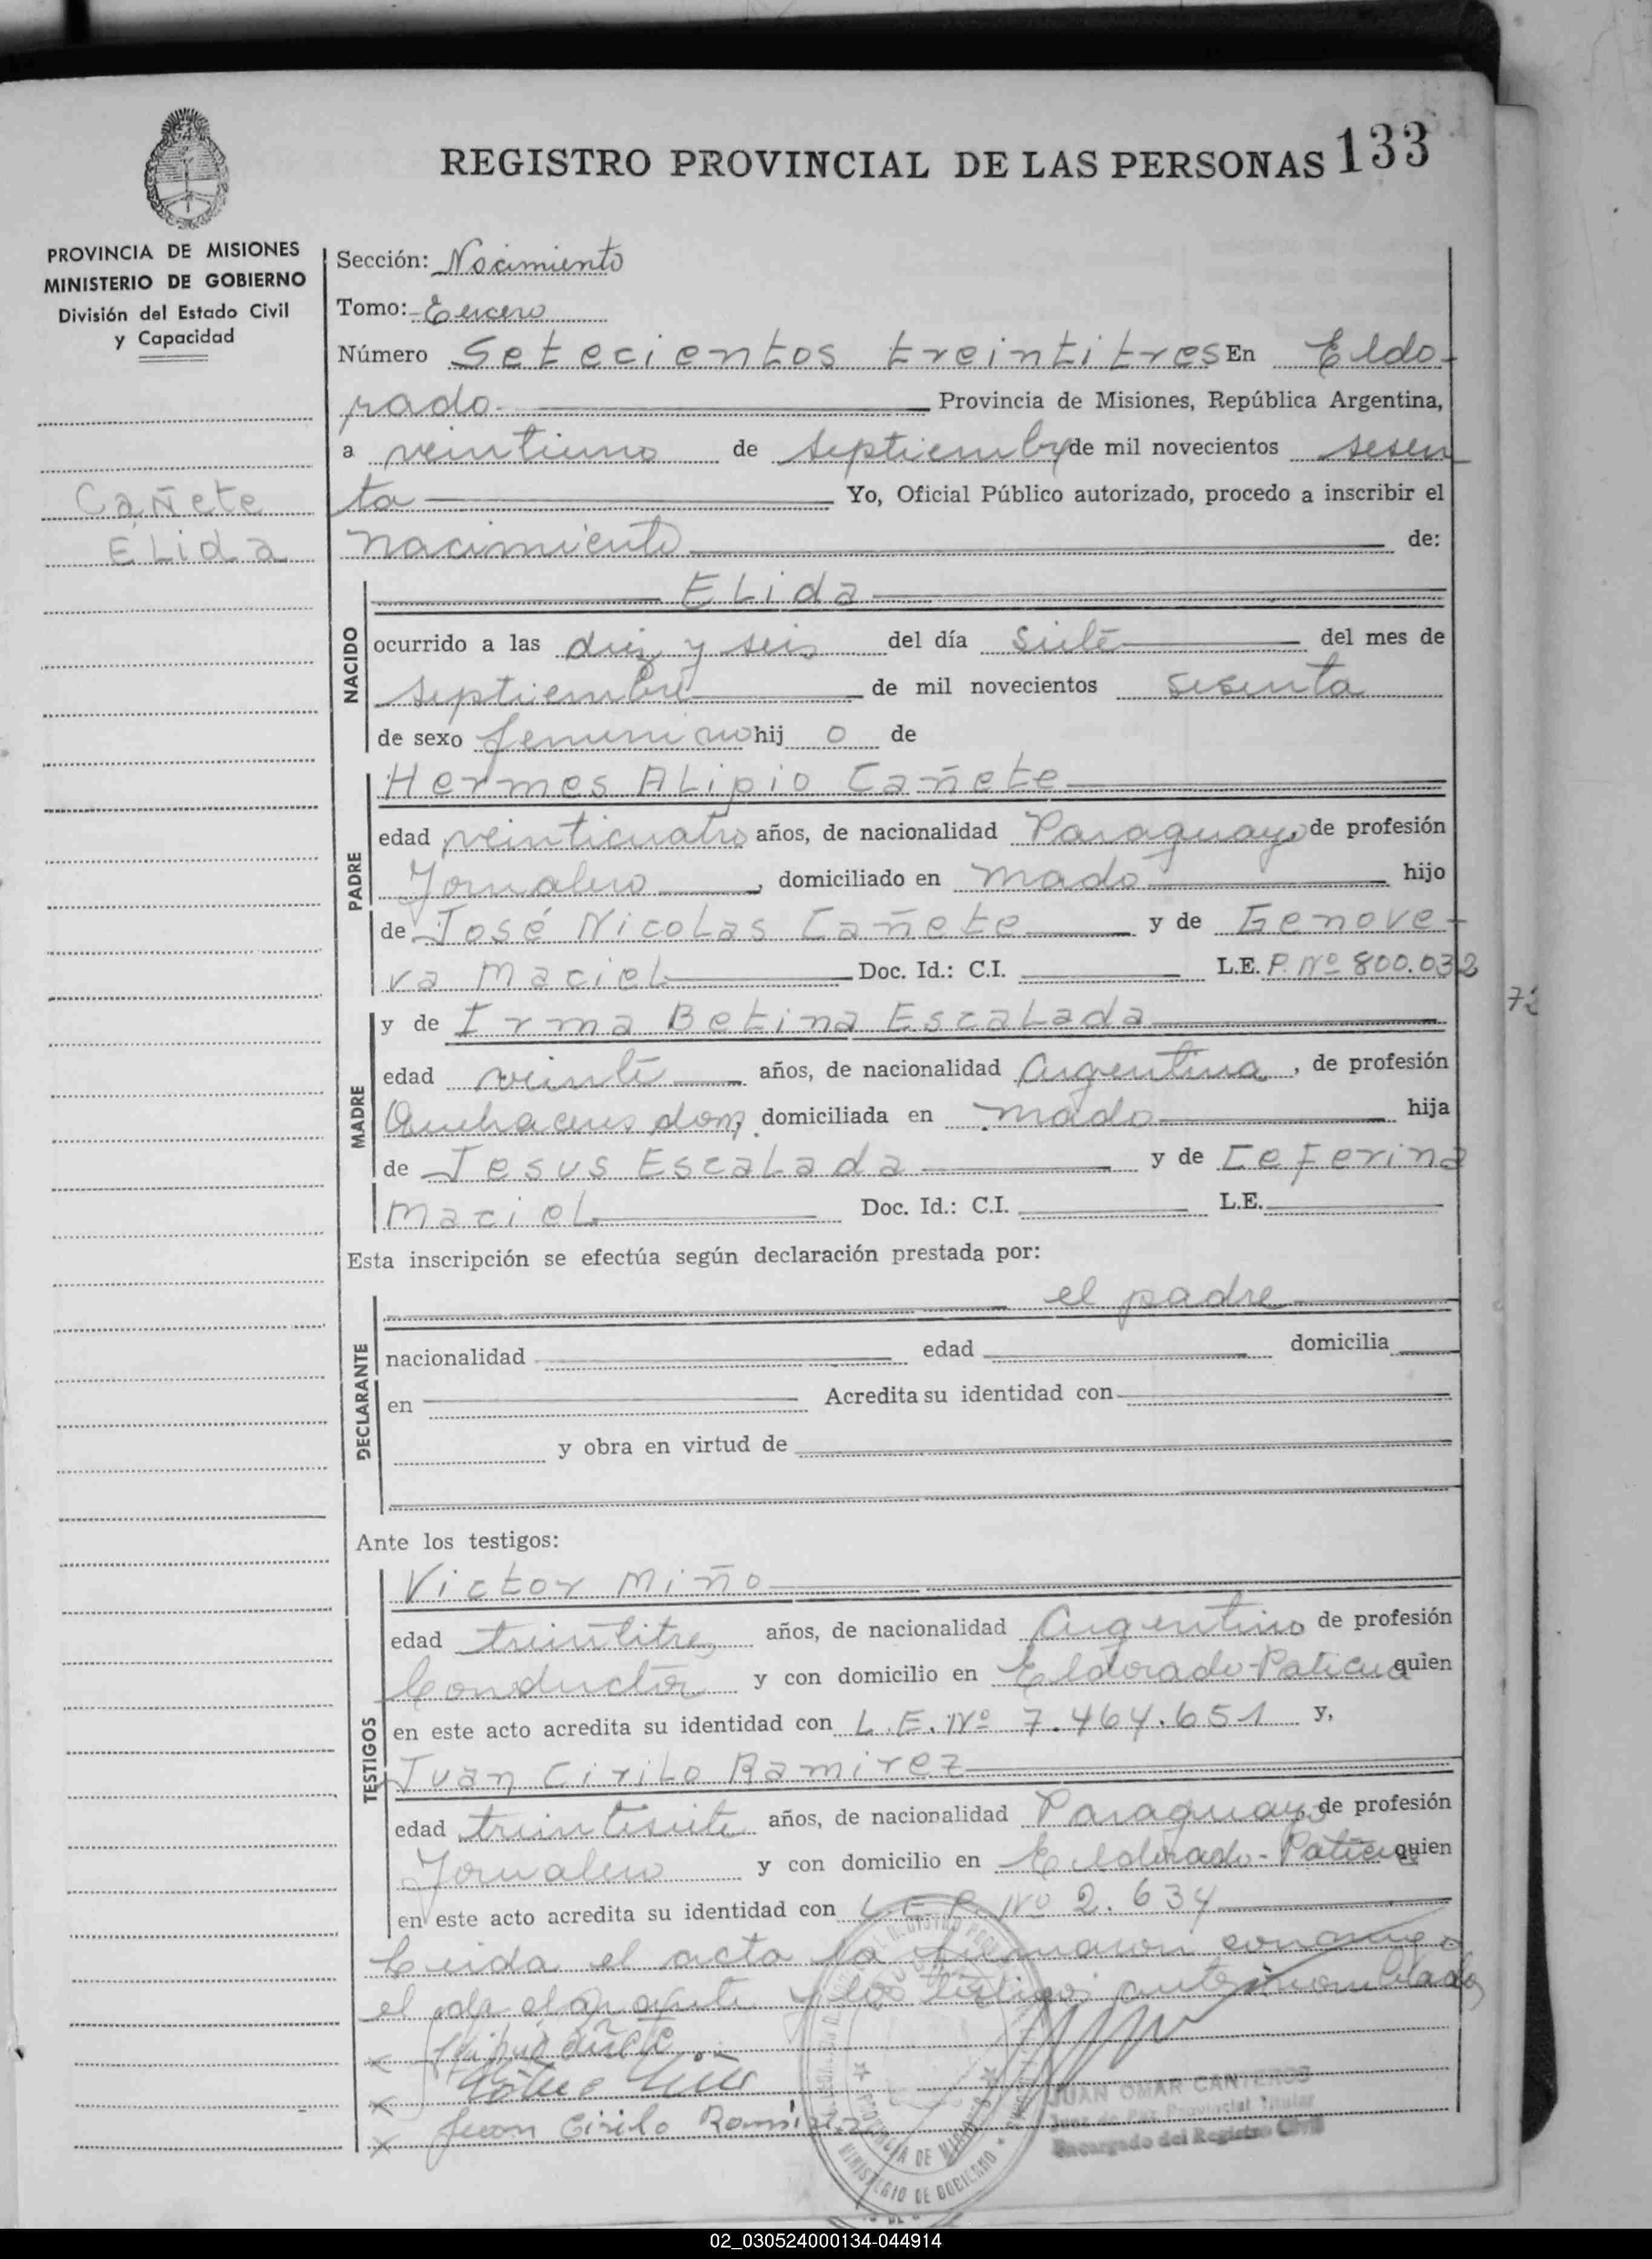 REGISTRO PROVINCIAL DE LAS PERSONAS 133
PROVINCIA DE MISIONES
MINISTERIO DE GOBIERNO
División del Estado Civil
y Capacidad
Cañete
Elida
Sección: Nacimiento
Tomo: Tercero
Número Setecientos treintitres En Eldo-
rado Provincia de Misiones, República Argentina,
a veintiuno de septiembre de mil novecientos sesen
ta Yo, Oficial Público autorizado, procedo a inscribir el
nacimiento de:
NACIDO
Elida
ocurrido a las diez y seis del día siete del mes de
septiembre de mil novecientos sesenta
de sexo femenino hij o de
PADRE
Hermes Alipio Cañete
edad veinticuatro años, de nacionalidad Paraguayo de profesión
Jornalero, domiciliado en Mado hijo
de José Nicolas Cañete y de Genove-
va Maciel Doc. Id.: C.I. L.E. P. Nº 800.032
72
MADRE
y de Irma Betina Escalada
edad veinte años, de nacionalidad Argentina, de profesión
Quehaceres dom, domiciliada en Mado hija
de Jesus Escalada y de Ceferina
Maciel Doc. Id.: C.I. L.E.
Esta inscripción se efectúa según declaración prestada por:
DECLARANTE
el padre
nacionalidad edad domicilia
en Acredita su identidad con
y obra en virtud de
Ante los testigos:
TESTIGOS
Victor Miño
edad treintitres años, de nacionalidad Argentino de profesión
Conductor y con domicilio en Eldorado- quien
en este acto acredita su identidad con L.E. Nº 7.464.651 y,
Juan Cirilo Ramirez
edad treintisiete años, de nacionalidad Paraguayo de profesión
Jornalero y con domicilio en Eldorado- quien
en este acto acredita su identidad con Nº 2.634
Leida el acta la firmaron conmigo
el y los testigos antesnombrados
x
x
x Juan Cirilo Ramírez
JUAN OMAR CANTEROS
Juez de Paz Provincial Titular
Encargado del Registro Civil
PROVINCIA DE MISIONES
MINISTERIO DE GOBIERNO
02_030524000134-044914